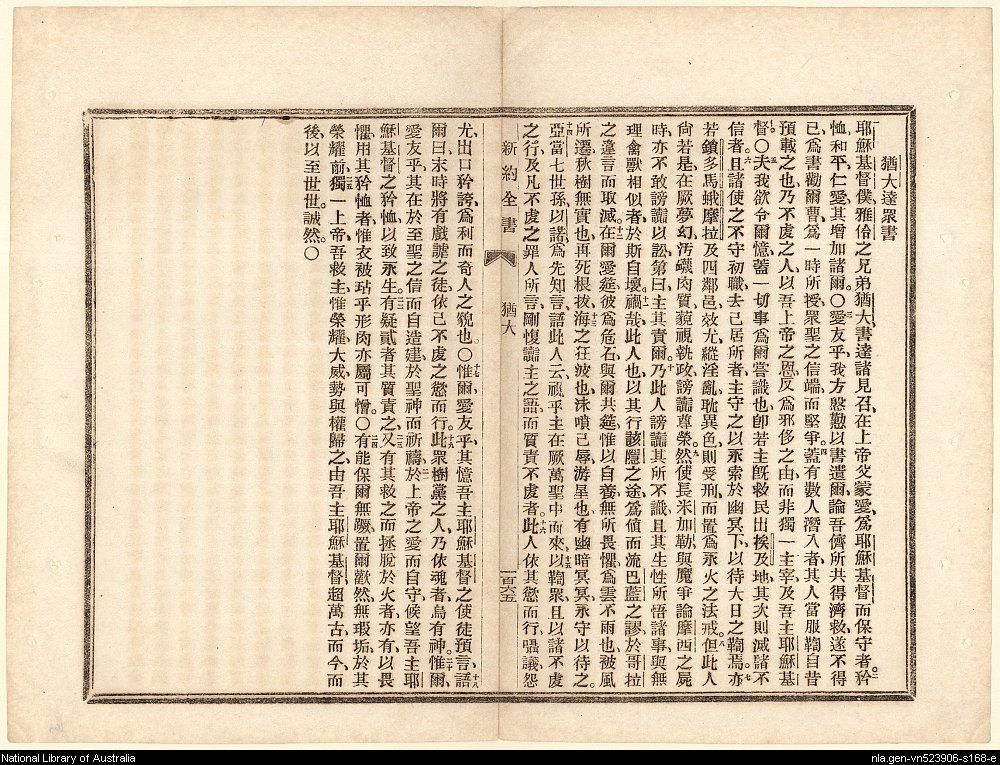 猶大達眾書
耶穌基督僕雅伶之兄弟猶大書達諸見召在上帝父蒙愛為耶穌基督而保守者二矜
恤和平仁愛其增加諸爾〇三愛友乎我方慇懃以書遣爾論吾儕所共得濟救遂不得
已為書勸爾曹為一時所授眾聖之信端而堅爭四蓋有數人潛入者其人當服鞫自昔
預載之也乃不虔之人以吾上帝之恩反為邪侈之由而非獨一主宰及吾主耶穌基
督〇五夫我欲令爾憶蓋一切事為爾嘗識也卽若主旣救民出挨及地其次則滅諸不
信者六且諸使之不守初職去己居所者主守之以永索於幽冥下以待大日之鞫焉七亦
若鎖多馬蛾摩拉及四鄰邑效尤縱淫亂耽異色則受刑而置為永火之法戒八但此人
尙若是在厥夢幻汚衊肉質藐視執政謗讟尊榮九然使長米加勒與魔爭論摩西之屍
時亦不敢謗讟以訟第曰主其責爾十乃此人謗讟其所不識且其生性所悟諸事與無
理禽獸相似者於斯自壞十一禍哉此人也以其行該隱之途為値而流巴藍之謬於哥拉
之違言而取滅十二在爾愛筵彼為危石與爾共筵惟以自養無所畏懼為雲不雨也被風
所遷秋樹無實也再死根拔十三海之狂波也沬噴己辱游星也有幽暗冥冥永守以待之
十四亞當七世孫以諾為先知言語此人云視乎主在厥萬聖中而來十五以鞫眾且以諸不虔
之行及凡不虔之罪人所言剛愎讟主之語而質責不虔者十六此人依其慾而行囁議怨
新約全書　猶大　一百六五
尤出口矜誇為利而奇人之貌也〇十七惟爾愛友乎其憶吾主耶穌基督之使徒預言語十八
爾曰末時將有戲謔之徒依己不虔之慾而行十九此眾樹黨之人乃依魂者烏有神二十惟爾
愛友乎其在於至聖之信而自造建於聖神而祈禱二一於上帝之愛而自守候望吾主耶
穌基督之矜恤以致永生二二有疑貳者其質責之二三又有其救之而拯脫於火者亦有以畏
懼用其矜恤者惟衣被玷乎形肉亦屬可憎〇二四有能保爾無蹶置爾歡然無瑕垢於其
榮耀前二五獨一上帝吾救主惟榮耀大威勢與權歸之由吾主耶穌基督超萬古而今而
後以至世世誠然〇
National Library of Australia
nla.gen-vn523906-s168-e